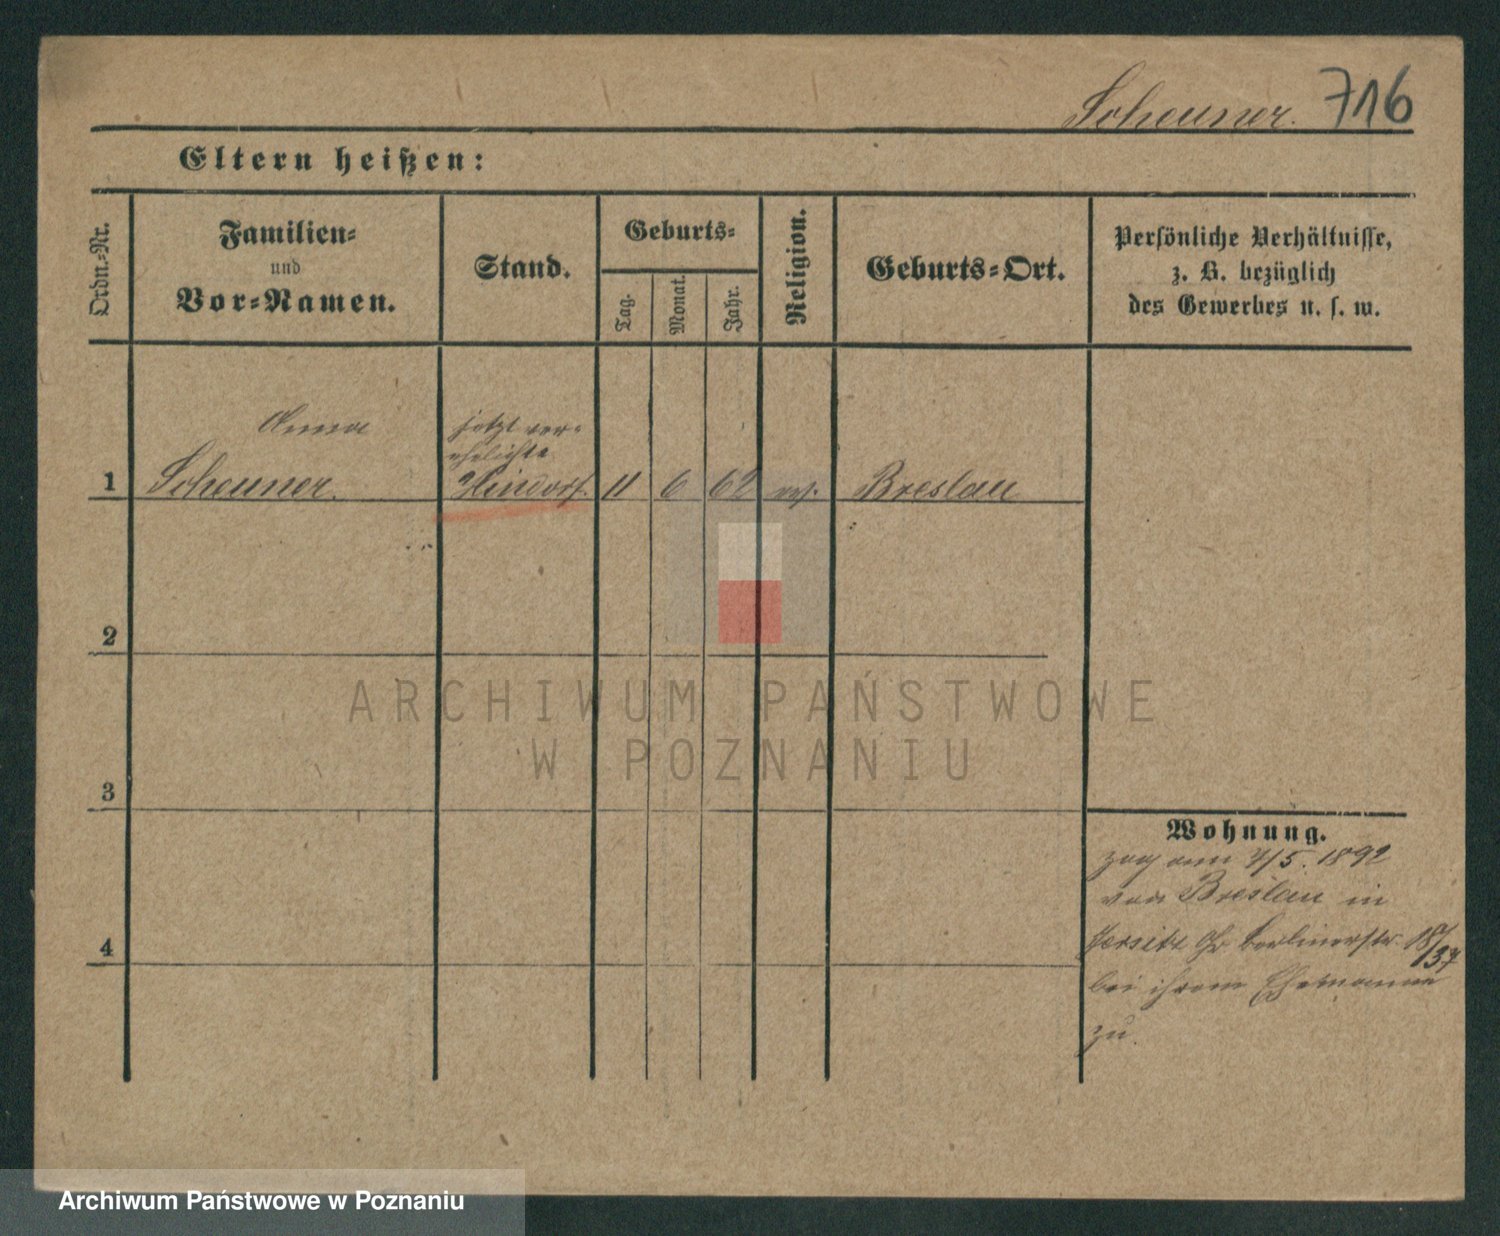 Scheuner. 716
Eltern heißen:
Ordn.-Nr.
Familien-
und
Vor-Namen.
Stand.
Geburts-
Tag.
Monat.
Jahr.
Religion.
Geburts-Ort.
Persönliche Verhältnisse,
z. B. bezüglich
des Gewerbes u. s. w.
Anna
jetzt ver-
ehelichte
1 Scheuner. Hindorf. 11 6 62 ev. Breslau
2
3
4
Wohnung.
zog am 4/5. 1892
von Breslau in
Jersitz Gr. Berlinerstr. 18/37
bei ihrem Ehemanne
zu.
ARCHIWUM PAŃSTWOWE
W POZNANIU
Archiwum Państwowe w Poznaniu